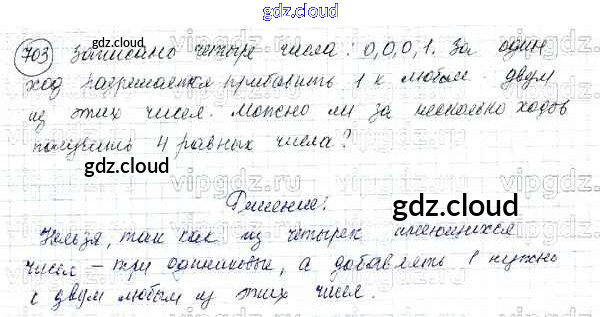 gdz.cloud
703 Записано четыре числа: 0,0,0,1. За один
ход разрешается прибавить 1 к любым двум
из этих чисел. Можно ли за несколько ходов
получить 4 равных числа?
gdz.cloud
gdz.cloud
vipgdz.ru
Решение:
gdz.cloud
Нельзя, так как из четырех имеющихся
чисел – три одинаковые, а добавлять 1 нужно
к двум любым из этих чисел.
gdz.cloud